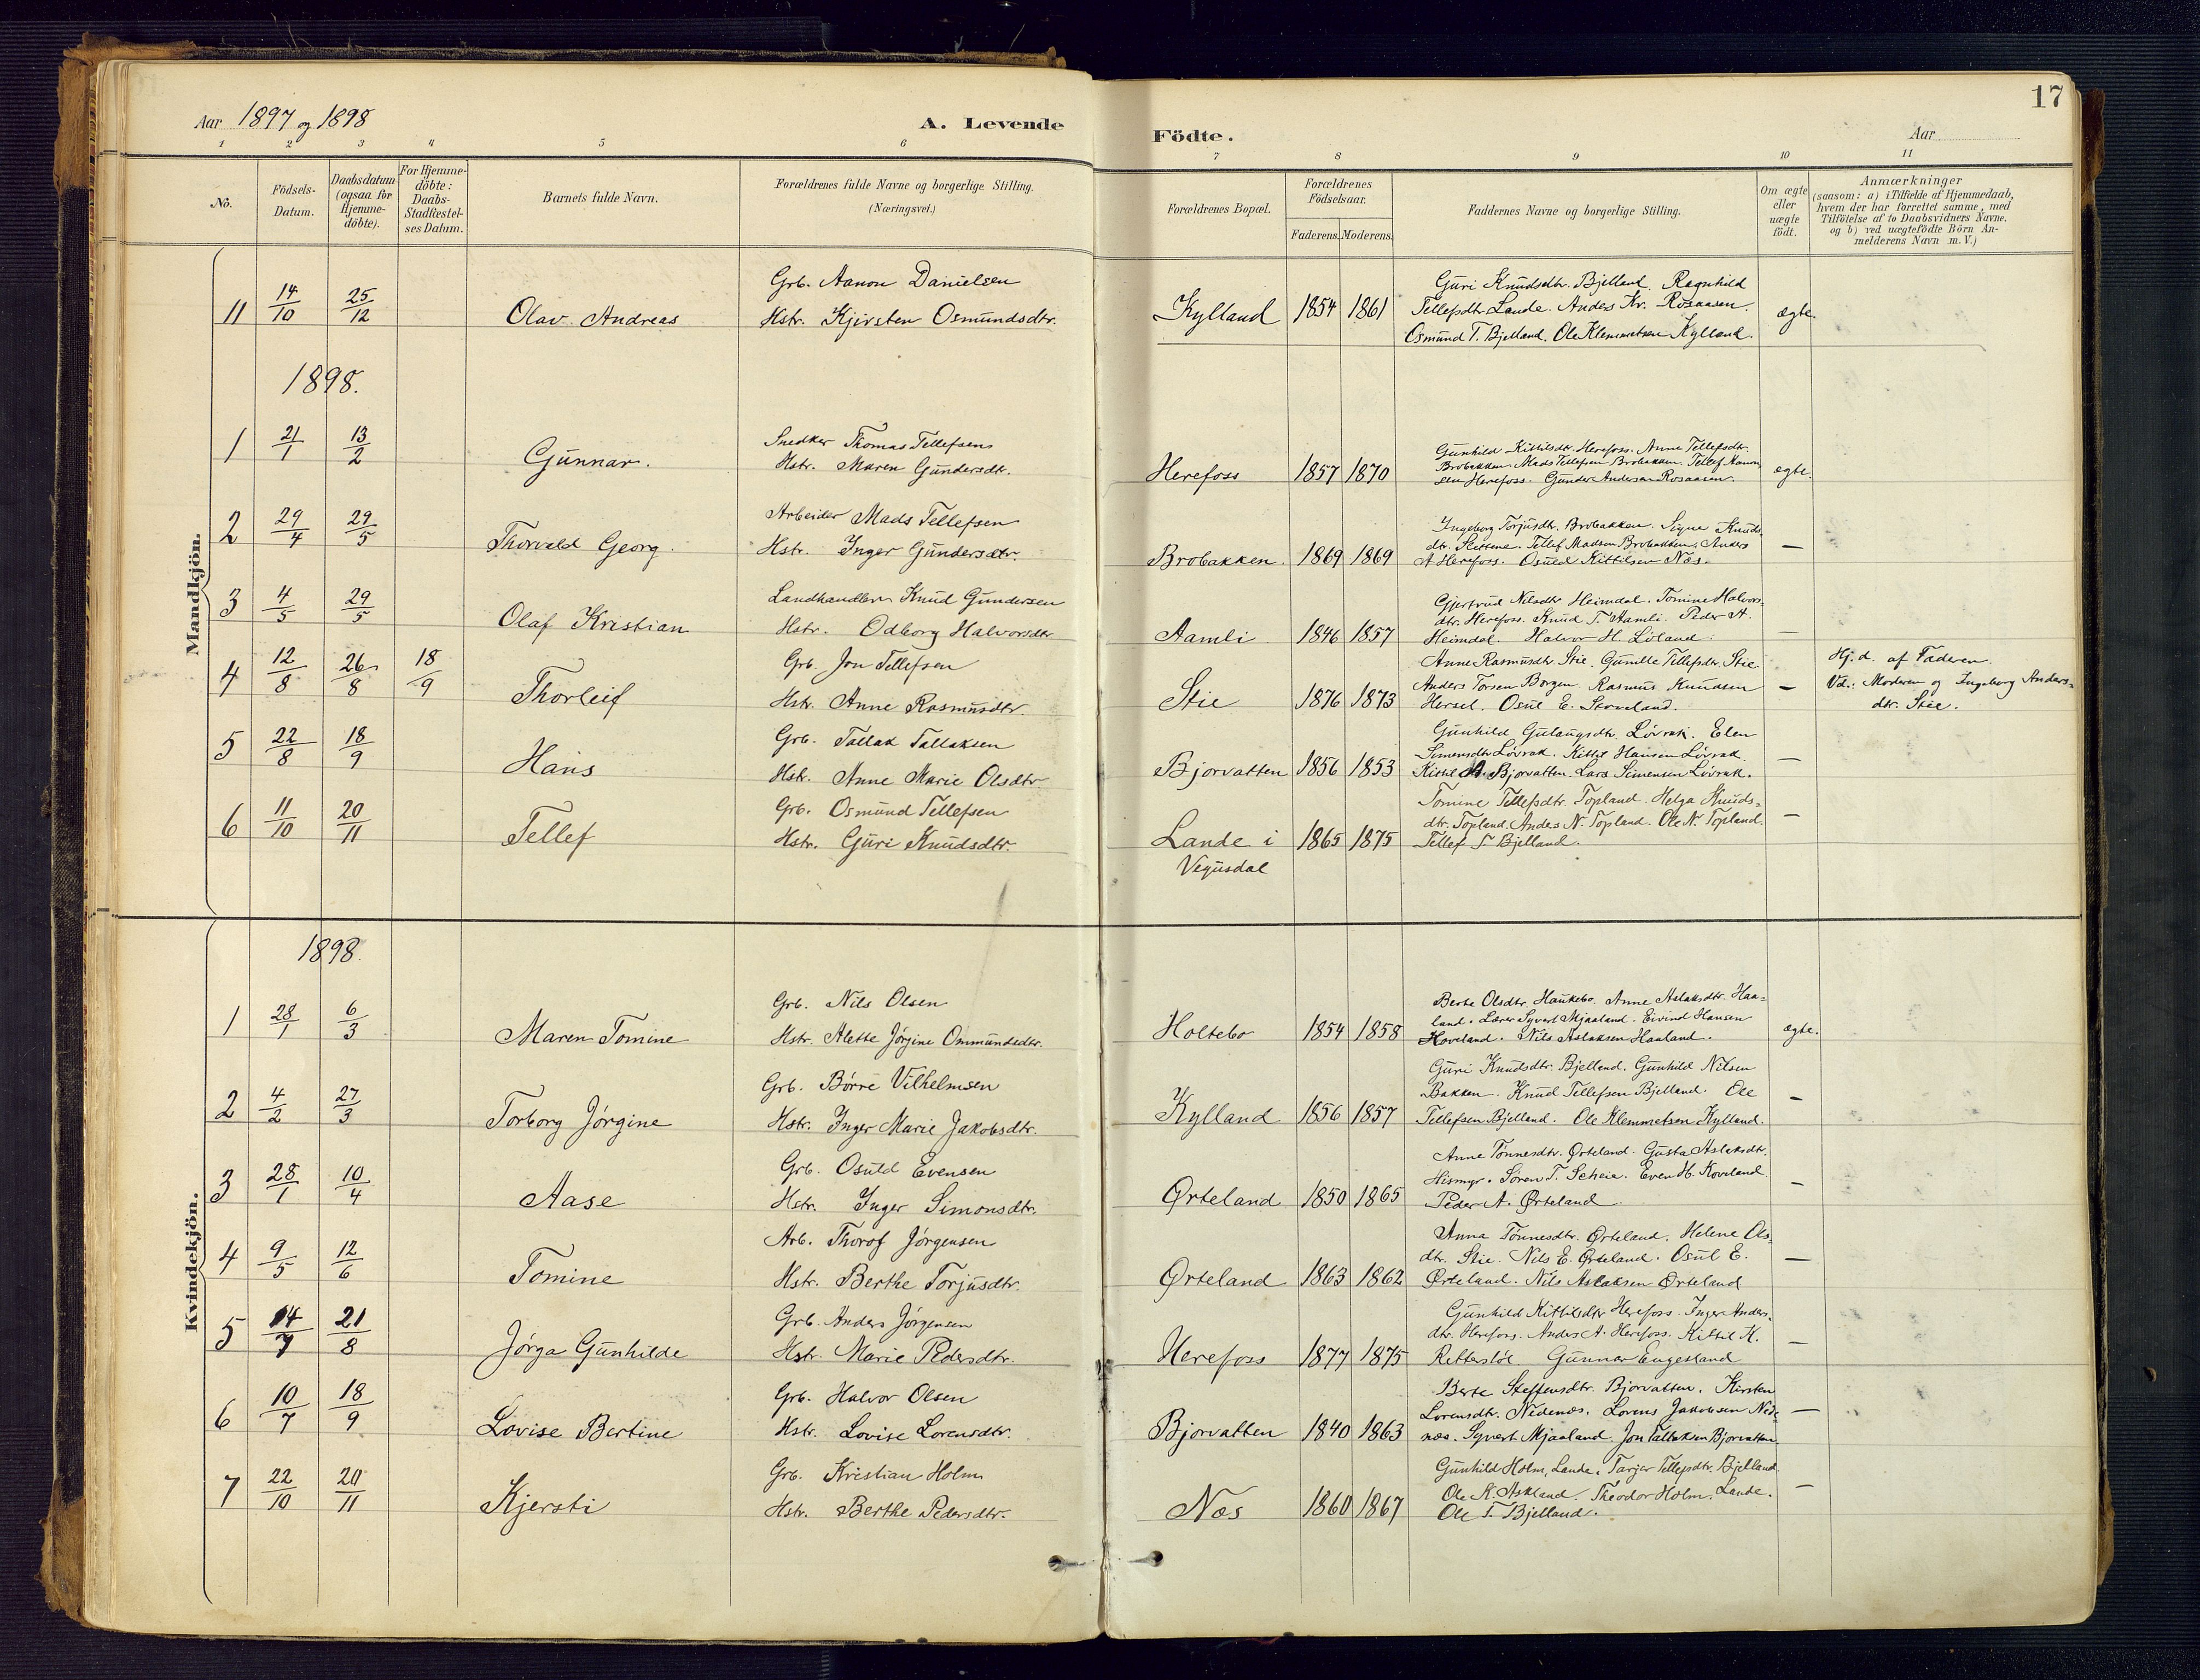 17
Aar 1897 og 1898 A. Levende Födte. Aar
1 2 3 4 5 6 7 8 9 10 11
No. Födsels-Datum. Daabsdatum (ogsaa for Hjemme-döbte). For Hjemme-döbte: Daabs-Stadfæstel-ses Datum. Barnets fulde Navn. Forældrenes fulde Navne og borgerlige Stilling. (Næringsvei.) Forældrenes Bopæl. Forældrenes Födselsaar. Faderens. Moderens. Faddernes Navne og borgerlige Stilling. Om ægte eller uægte födt. Anmærkninger (saasom: a) i Tilfælde af Hjemmedaab, hvem der har forrettet samme, med Tilföielse af to Daabsvidners Navne. og b) ved uægtefödte Börn An-melderens Navn m. V.)
Mandkjön.
Grb. Aanon Danielsen
Guri Knudsdtr. Bjelland. Ragnhild
11 14/10 25/12 Olav Andreas Hstr. Kjirsten Osmundsdtr. Kylland 1854 1861 Tellefsdtr Lande. Anders Kr. Rosaasen. ægte.
Osmund T. Bjelland. Ole Klemmetsen Kylland.
1898.
Snedker Thomas Tellefsen
Gunhild Kittilsdtr. Herefoss. Anne Tellefsdtr.
1 21/1 13/2 Gunnar. Hstr. Maren Gundersdtr. Herefoss 1857 1870 Brobakken. Mads Tellefsen Brobakken. Tellef Aanon
sen Herefoss. Gunder Andersen Rosaasen. ægte.
Arbeider Mads Tellefsen
Ingeborg Torjusdtr. Brobakken. Signe Knuds
2 29/4 29/5 Thorvald Georg. Hstr. Inger Gundersdtr. Brobakken. 1869 1869 dtr. Tellef Madsen Brobakken. Anders —
A Herefoss. Kittilsen Næs.
Landhandler Knud Gundersen
Gjertrud Nilsdtr Heimdal. Tomine Halvors-
3 4/5 29/5 Olaf Kristian Hstr. Odborg Halvorsdtr Aamli 1846 1857 dtr. Herefoss. Knud T. Aamli. Peder A.
Heimdal. Halvor H. Liland. —
Grb. Jon Tellefsen
Anne Rasmusdtr. Stie. Gunille Tellefsdtr. Stie Hj.d. af Faderen.
4 12/8 26/8 18/9 Thorleif Hstr. Anne Rasmusdtr. Stie 1876 1873 Anders Torsen Borgen. Rasmus Knudsen — Vd.: Moderen og Ingeborg Anders-
Hersel. Osul E. dtr. Stie.
Grb. Tallak Tallaksen
Gunhild Gulaugsdtr. Lövrak. Elen
5 22/8 18/9 Hans Hstr. Anne Marie Olsdtr Bjorvatten 1856 1853 Simensdtr Lövrak. Kittil Hansen Lövrak. —
Kittil Bjorvatten. Lars Simensen Lövrak.
Grb. Osmund Tellefsen
Tomine Tellefsdtr. Topland. Helga Knuds-
6 11/10 20/11 Tellef Hstr. Guri Knudsdtr. Lande i 1865 1875 dtr. Topland. Anders N. Topland. Ole N. Topland. —
Vegusdal Tellef T. Bjelland.
Kvindekjön.
1898.
Grb. Nils Olsen
Berte Olsdtr. Haukebo. Anne Aslaksdtr. Haa-
1 28/1 6/3 Maren Tomine Hstr. Alette Jörgine Ommundsdtr. Holtebo 1854 1858 land. Lærer Syvert Mjaaland. Eivind Hansen
Hoveland. Nils Aslaksen Haaland. ægte.
Grb. Börre Vilhelmsen
Guri Knudsdtr. Bjelland. Gunhild Nilsen
2 4/2 27/3 Torborg Jörgine Hstr. Inger Marie Jakobsdtr. Kylland 1856 1857 Bakken. Knud Tellefsen Bjelland. Ole —
Tellefsen Bjelland. Ole Klemmetsen Kylland.
Grb. Osuld Evensen
Anne Tönnesdtr. Örteland. Gusta Aslaksdtr.
3 28/1 10/4 Aase Hstr. Inger Simonsdtr. Örteland 1850 1865 Hismyr. Sören T. Scheia. Even H. Koveland. —
Peder A. Örteland.
Arb. Thorof Jörgensen
Anna Tönnesdtr. Örteland. Helene Ols-
4 9/5 12/6 Tomine Hstr. Berthe Torjusdtr. Örteland 1863 1862 dtr. Stie. Nils E. Örteland. Osul E. —
Örteland. Nils Aslaksen Örteland
Grb. Anders Jörgensen
Gunhild Kittilsdtr Herefoss. Inger Anders-
5 14/7 21/8 Jörga Gunhilde Hstr. Marie Pedersdtr. Herefoss 1877 1875 dtr. Herefoss. Anders A. Herefoss. Kittil K. —
Retterstöl. Gunnar Engesland
Grb. Halvor Olsen
Berte Steffensdtr. Bjorvatten. Kirsten
6 10/7 18/9 Lovise Bertine Hstr. Lovise Lorensdtr. Bjorvatten 1840 1863 Lorensdtr. Nedenæs. Lorens Jakobsen Nede- —
næs. Syvert Mjaaland. Jon Tallaksen Bjorvatten.
Grb. Kristian Holm
Gunhild Holm, Lande. Tarjer Tellefsdtr. Bjelland.
7 22/10 20/11 Kjersti Hstr. Berthe Pedersdtr. Næs 1860 1867 Ole K. Askland. Theodor Holm. Lande. —
Ole T. Bjelland.